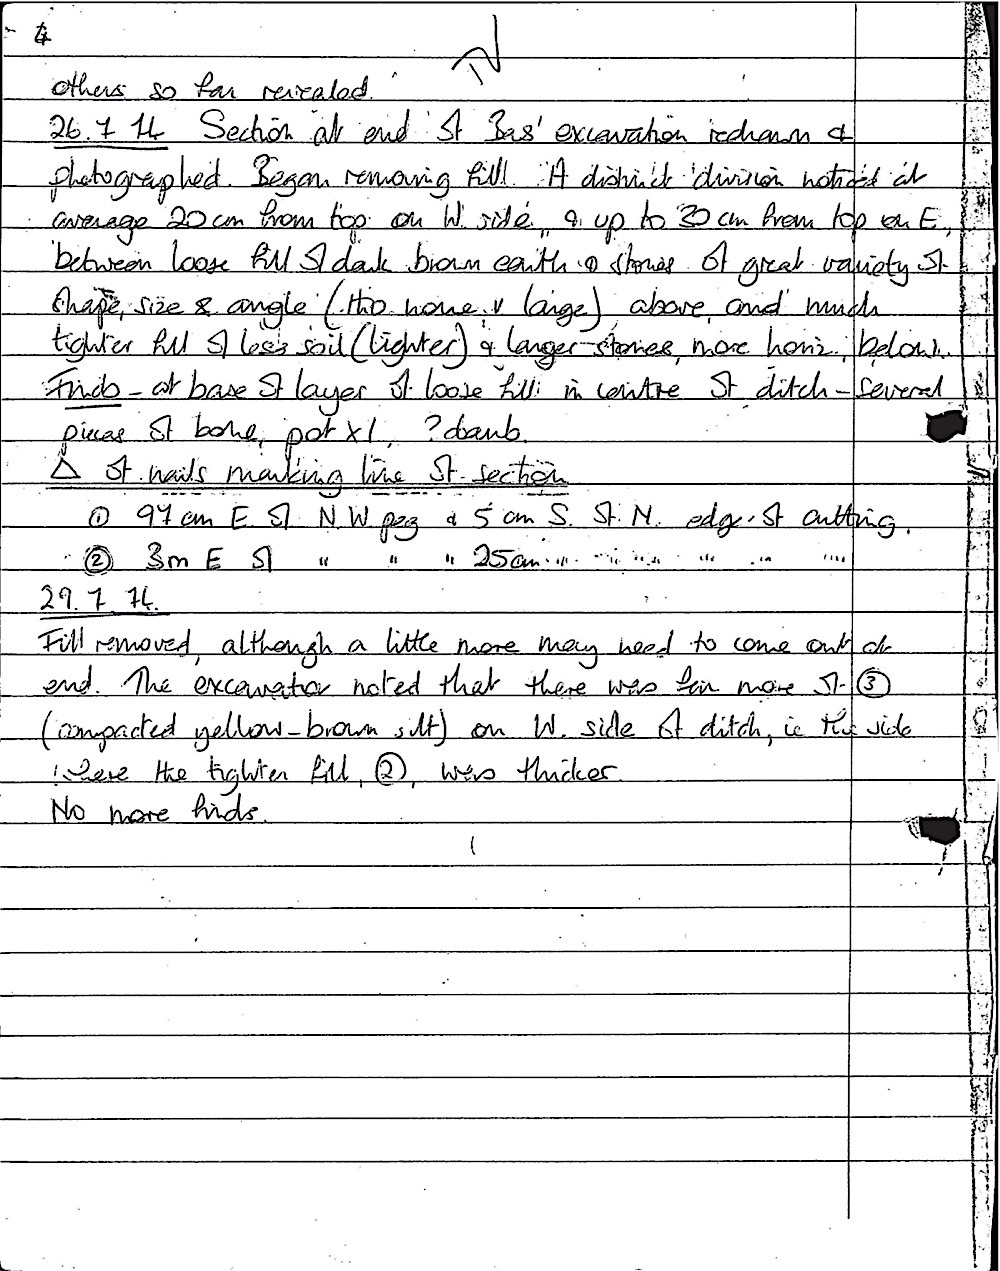 4
others so far revealed.
26.7.74 Section at end of Bas' excavation redrawn &
photographed. Began removing fill. A distinct division noticed at
average 20 cm from top on W. side, & up to 30 cm from top on E,
between loose fill of dark brown earth & stones of great variety of
shape, size & angle (tho none v large) above, and much
tighter fill of less soil (lighter) & larger stones, more horiz, below.
Finds - at base of layer of loose fill in centre of ditch - several
pieces of bone, pot x1, ?daub.
△ of nails marking line of section
① 97 cm E of N.W peg & 5 cm S. of N. edge of cutting.
② 3m E of " " " 25cm " " " " " "
29.7.74.
Fill removed, although a little more may need to come out at
end. The excavator noted that there was far more of ③
(compacted yellow-brown silt) on W. side of ditch, ie the side
where the tighter fill, ②, was thicker.
No more finds.